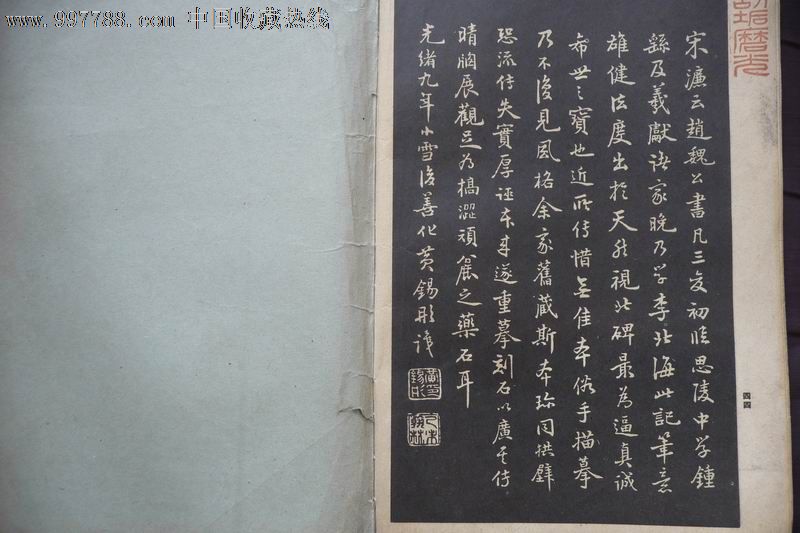 www.997788.com 中国收藏热线
宋濂云趙魏公書凡三变初臨思陵中学鍾
繇及羲獻諸家晚乃学李北海此記筆意
雄健法度出於天然視此碑最為逼真誠
希世之寶也近所传惜无佳本俗手描摹
乃不復見風格余家舊蔵斯本珍同拱璧
恐流传失實厚誣本来遂重摹刻石以廣其传
晴牕展觀足為槁澀頑
之藥石耳
光緒九年小雪後善化黄錫彤識
四四